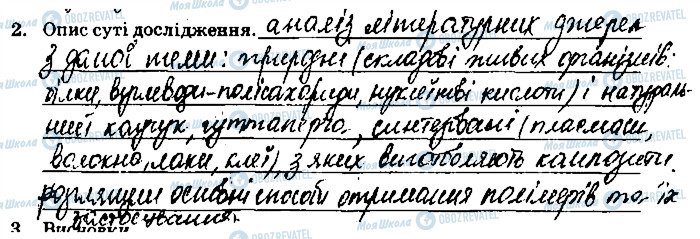 2. Опис суті дослідження. аналіз літературних джерел
з даної теми: природні (складові живих організмів:
білки, вуглеводи-полісахариди, нуклеїнові кислоти) і натураль-
ний каучук, гуттаперча, синтезовані (пластмаси,
волокна, лаки, клеї), з яких виготовляють композити.
розглянули основні способи отримання полімерів та їх
застосування.
3. Висновки